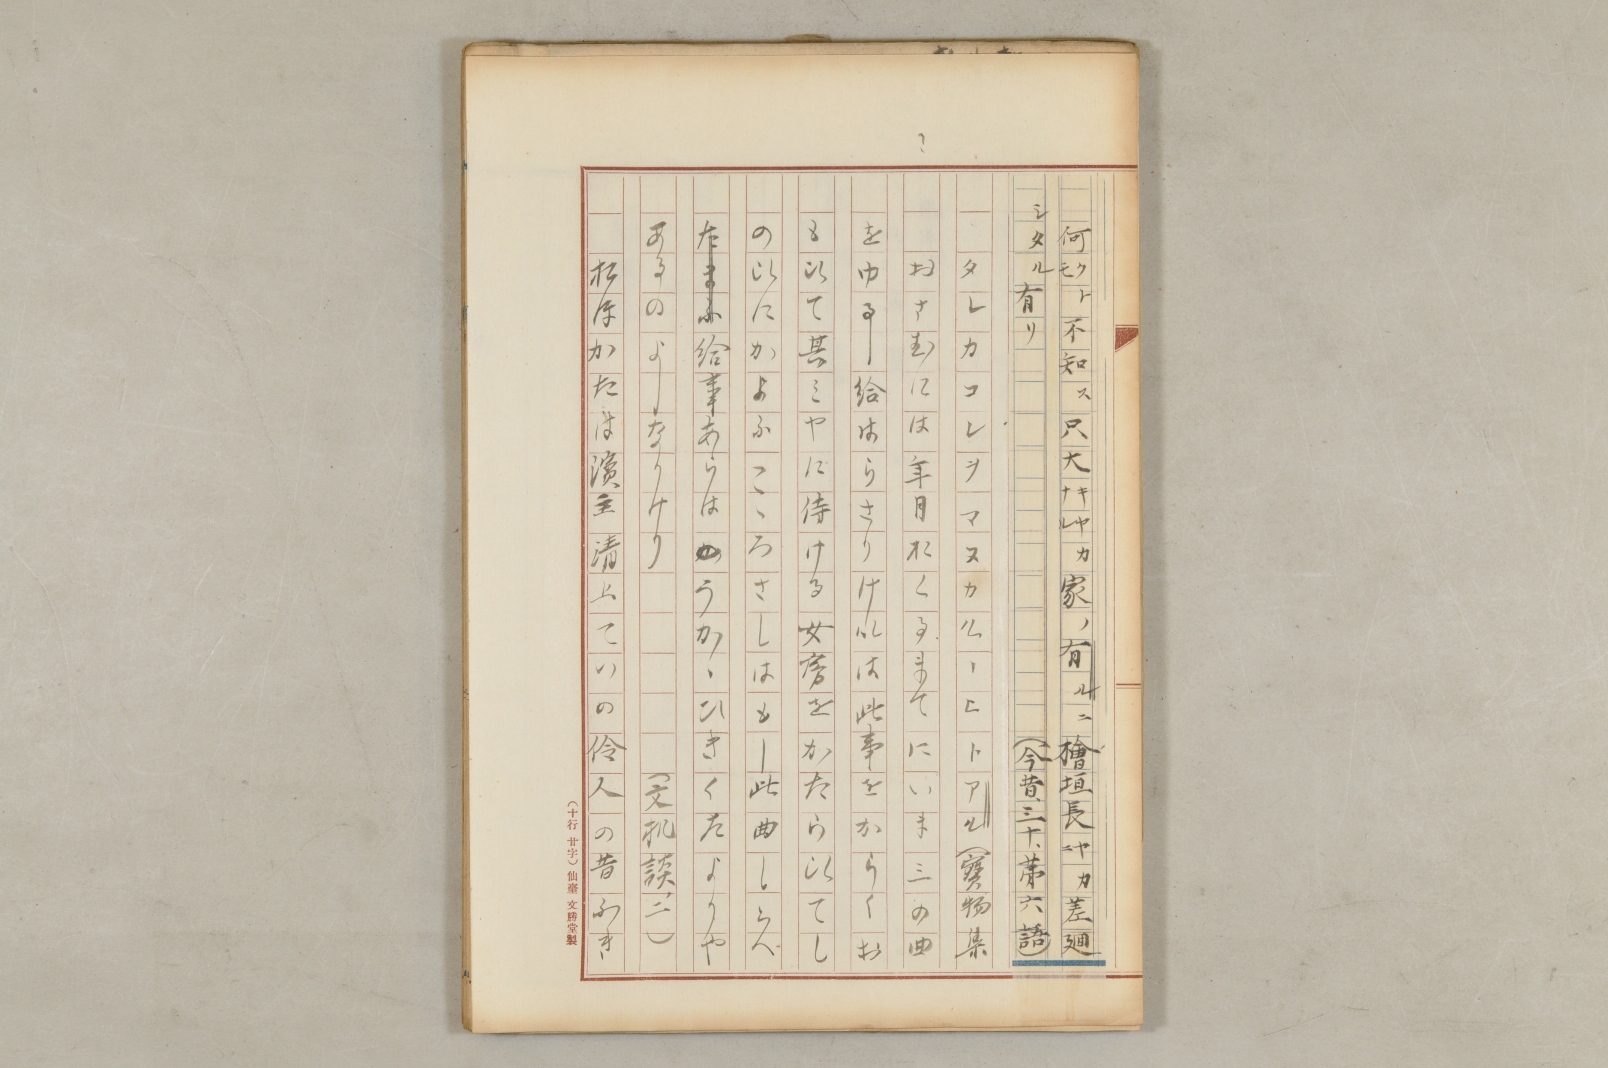 何モクト不知ス只大ナキレヤカ家ノ有ルニ檜垣長ニヤカ差廻
シタル有リ(今昔、三十、第六語)
タレカコレヲマヌカルヽヒトアル(寶物集
おさむには年月おくるまてにいま三の曲
をゆるし給はらさりけれは此事をからくお
もひて其みやに侍ける女房をかたらひてし
のひにかよふこゝろさしはもし此曲しらへ
たまふ給事あらはうかゝひきくたよりや
あるのよしなりけり(文机談、二)
おほかたは濱主清上ていの伶人の昔ふき
(十行廿字)仙臺文勝堂製